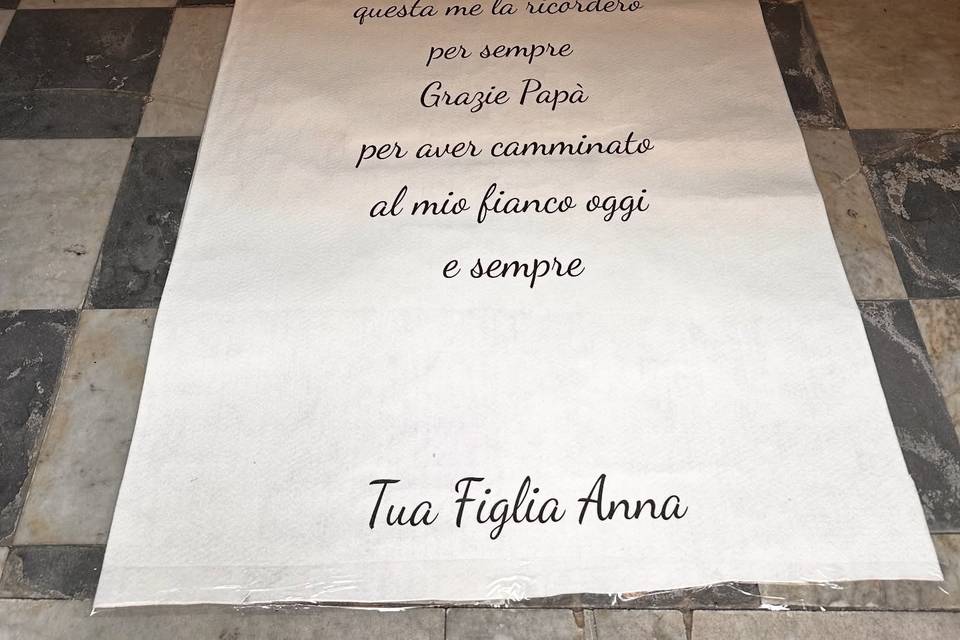 questa me la ricorderò
per sempre
Grazie Papà
per aver camminato
al mio fianco oggi
e sempre
Tua Figlia Anna